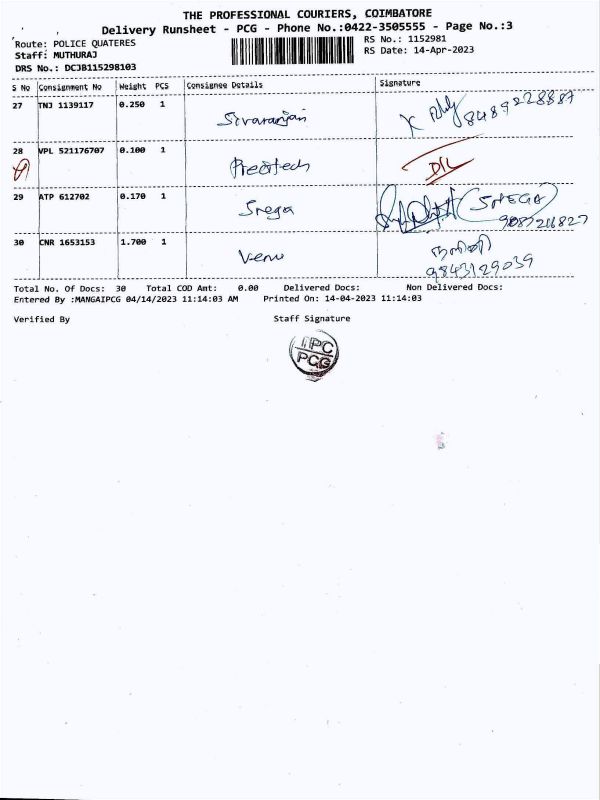 THE PROFESSIONAL COURIERS, COIMBATORE
Delivery Runsheet - PCG - Phone No.:0422-3505555 - Page No.:3
Route: POLICE QUATERES RS No.: 1152981
Staff: MUTHURAJ RS Date: 14-Apr-2023
DRS No.: DCJB115298103
S No Consignment No Weight PCS Consignee Details Signature
27 TNJ 1139117 0.250 1 Sivaranjani 8489228887
28 VPL 521176707 0.100 1
29 ATP 612702 0.170 1 Srega (SREGA)
30 CNR 1653153 1.700 1 Venu
9843129039
Total No. Of Docs: 30 Total COD Amt: 0.00 Delivered Docs: Non Delivered Docs:
Entered By :MANGAIPCG 04/14/2023 11:14:03 AM Printed On: 14-04-2023 11:14:03
Verified By Staff Signature
PCG